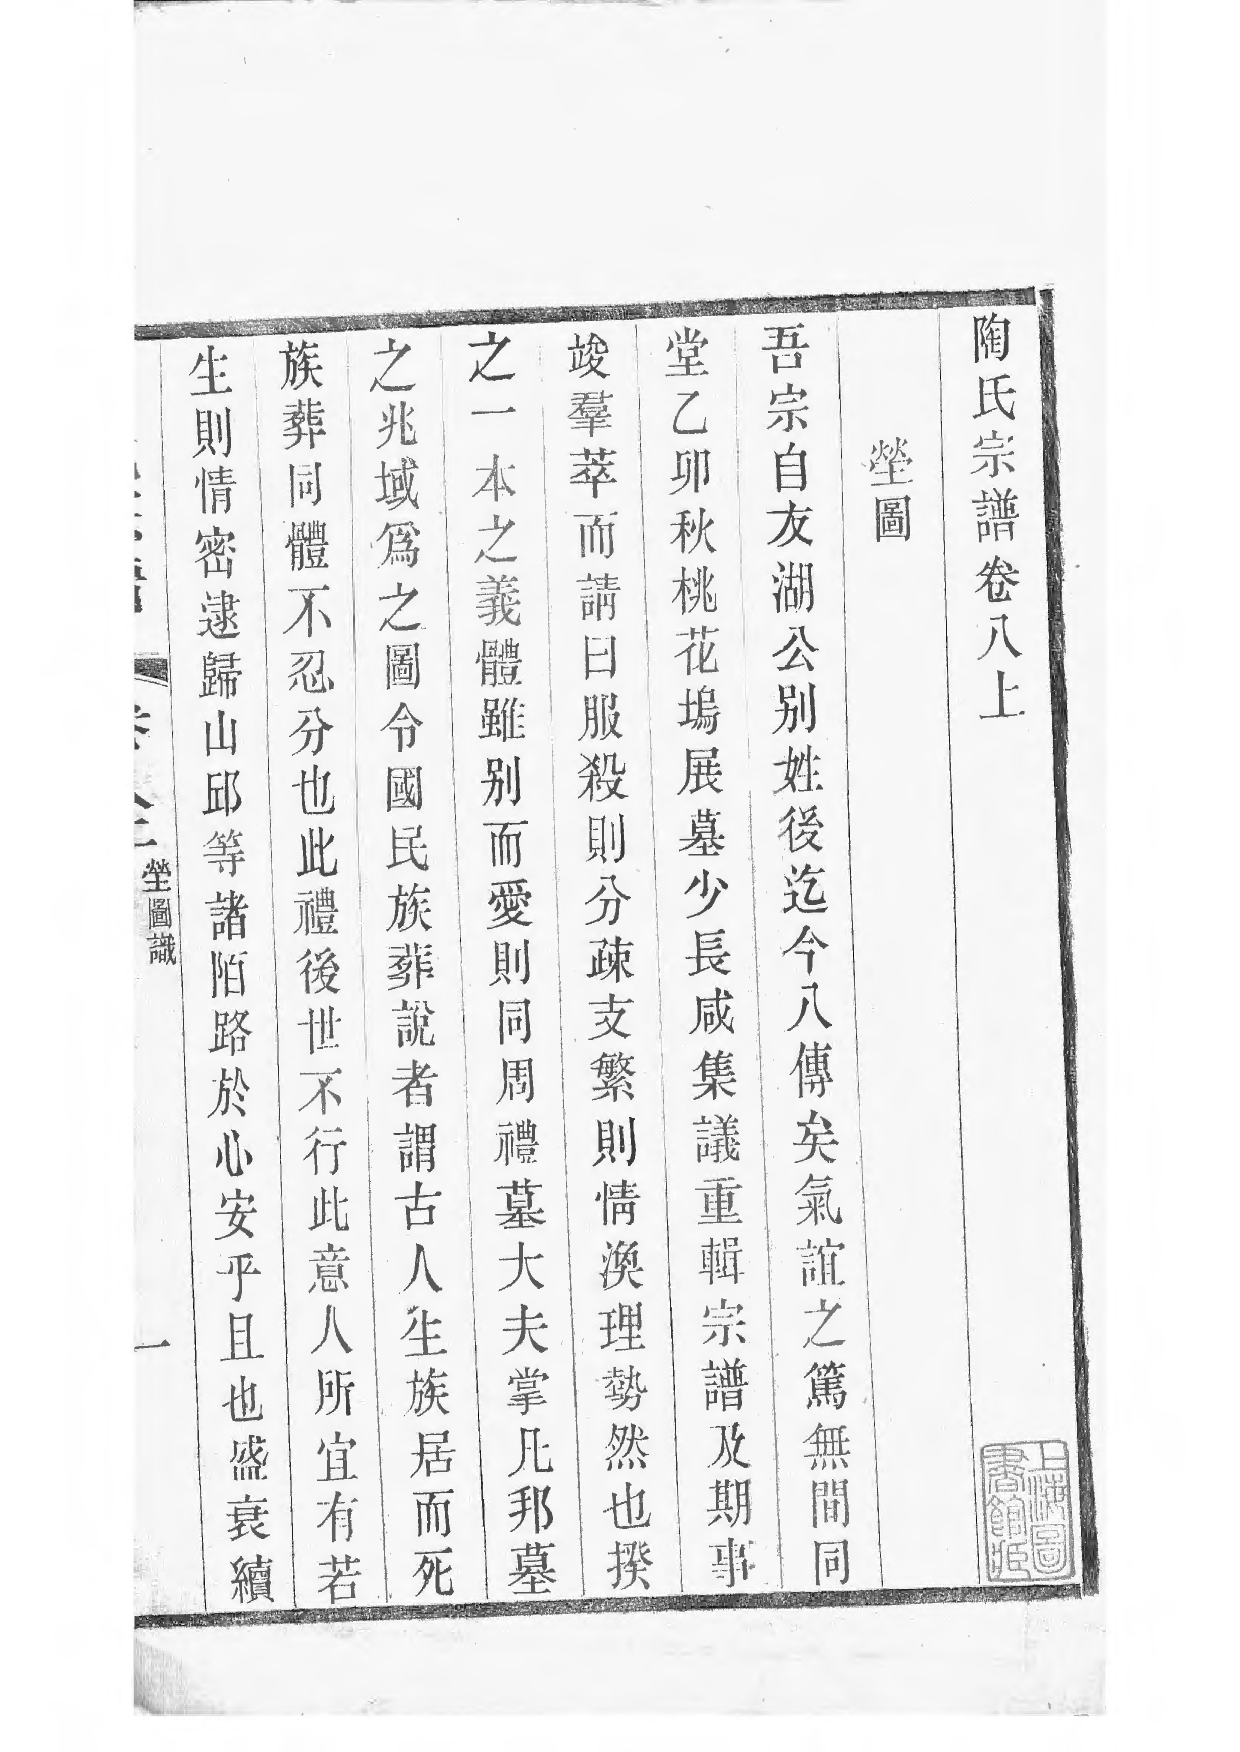 陶氏宗譜卷八上
塋圖
吾宗自友湖公別姓後迄今八傳矣氣誼之篤無間同
堂乙卯秋桃花塢展墓少長咸集議重輯宗譜及期事
竣羣萃而請曰服殺則分疎支繁則情渙理勢然也揆
之一本之義體雖別而愛則同周禮墓大夫掌凡邦墓
之兆域爲之圖令國民族葬說者謂古人生族居而死
族葬同體不忍分也此禮後世不行此意人所宜有若
生則情密逮歸山邱等諸陌路於心安乎且也盛衰續
塋圖識
一
上海圖書館藏